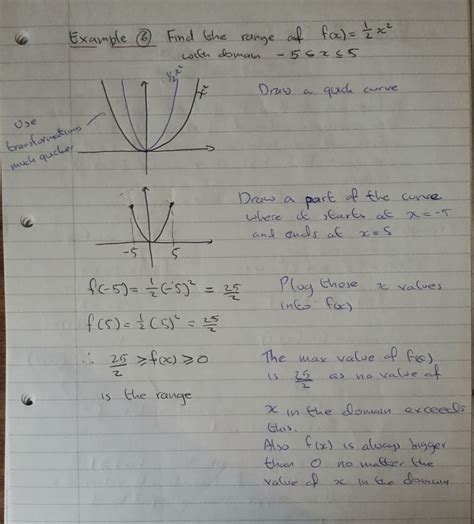 Example 6 Find the range of f(x) = 1/2 x²
with domain -5 ≤ x ≤ 5
1/2 x²
x²
Draw a quick curve
Use
transformations
much quicker
Draw a part of the curve
where it starts at x = -5
and ends at x = 5
-5 5
f(-5) = 1/2 (-5)² = 25/2
Plug these x values
into f(x)
f(5) = 1/2 (5)² = 25/2
∴ 25/2 ≥ f(x) ≥ 0
is the range
The max value of f(x)
is 25/2 as no value of
x in the domain exceeds
this.
Also f(x) is always bigger
than 0 no matter the
value of x in the domain